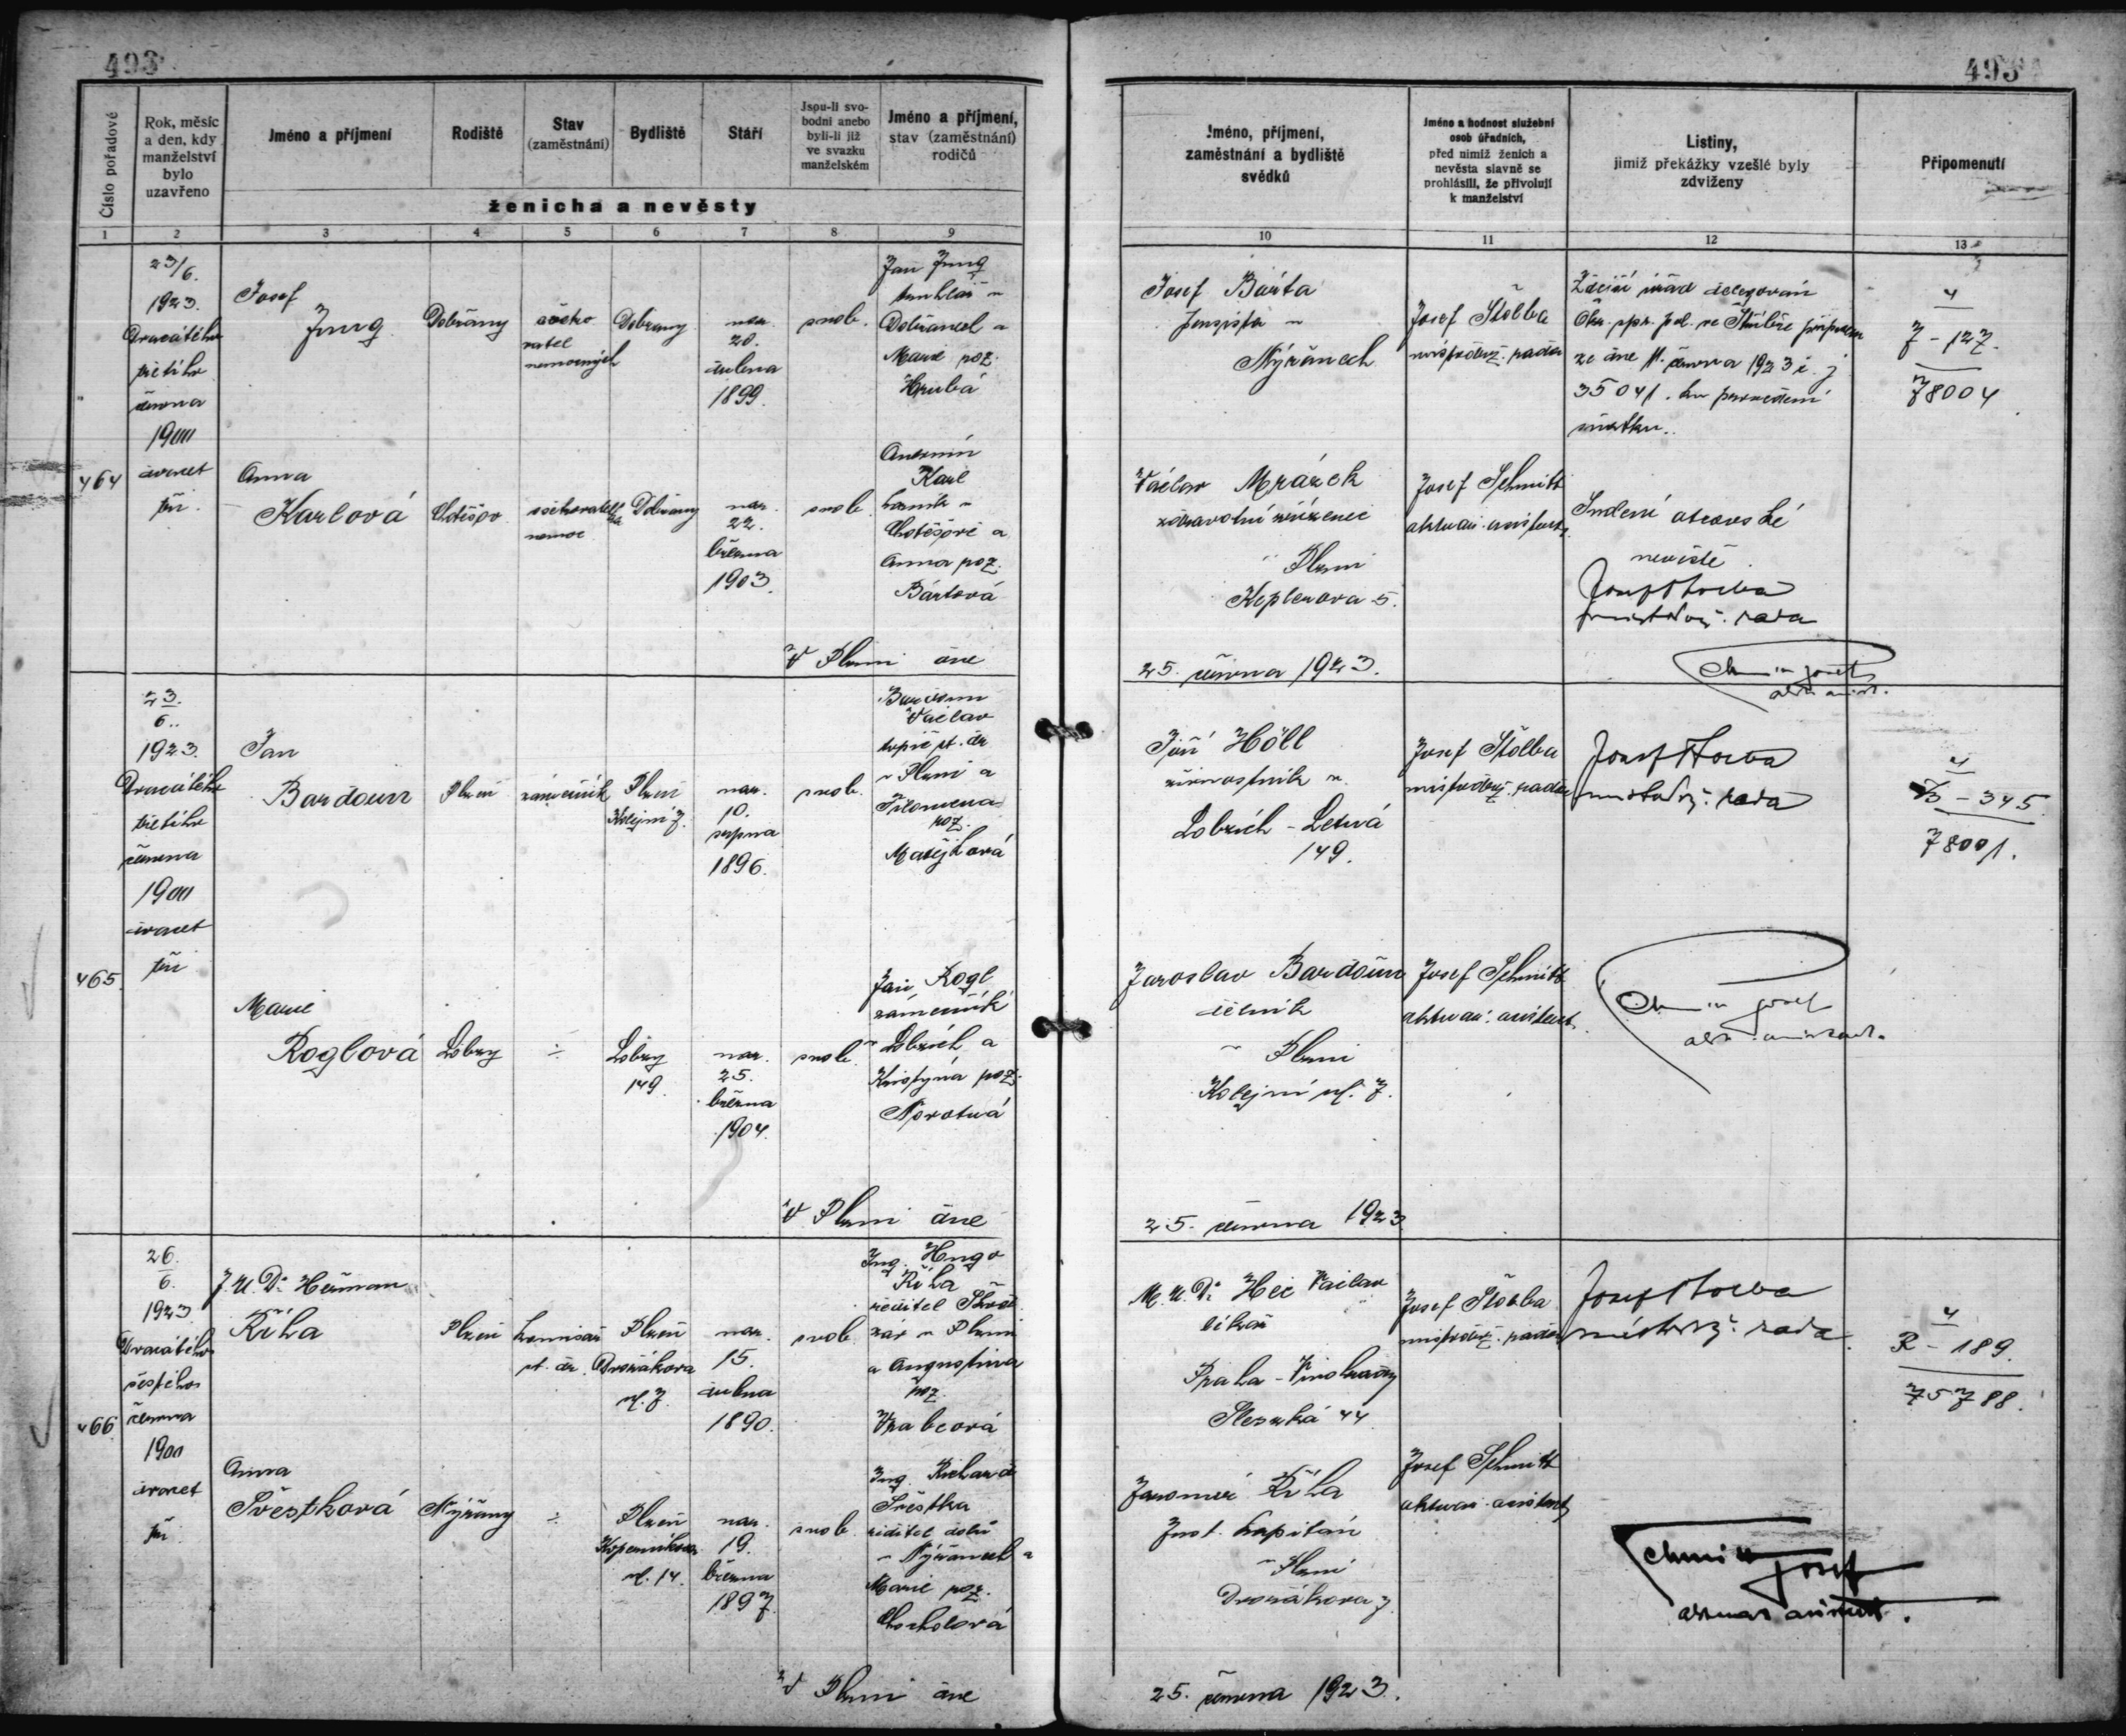 493
493
Číslo pořadové
Rok, měsíc
a den, kdy
manželství
bylo
uzavřeno
Jméno a příjmení
Rodiště
Stav
(zaměstnání)
Bydliště
Stáří
Jsou-li svo-
bodni anebo
byli-li již
ve svazku
manželském
Jméno a příjmení,
stav (zaměstnání)
rodičů
ženicha a nevěsty
Jméno, příjmení,
zaměstnání a bydliště
svědků
Jméno a hodnost služební
osob úřadních,
před nimiž ženich a
nevěsta slavně se
prohlásili, že přivolují
k manželství
Listiny,
jimiž překážky vzešlé byly
zdviženy
Připomenutí
1
2
3
4
5
6
7
8
9
10
11
12
13
464
23/6.
1923.
Dvacátého
třetího
června
1900
dvacet
tři
Josef
Jung
Dobřany
nemocných
Dobřany
nar.
20.
dubna
1899.
svob.
Jan Jung
truhlář v
Dobřanech a
Marie roz.
Hrubá
Josef Bárta
v
Nýřanech
Josef Štolba
místodrž. rada
Zdejší úřad delegován
Okr. spr. pol. ve Stříbře
ze dne 11. června 1923 č. j.
35041. ku provedení
sňatku.
4
J - 127.
78004
Anna
Karlová
Chotěšov
nemoc
Dobřany
nar.
22.
března
1903.
svob.
Antonín
Karl
horník v
Chotěšově a
Anna roz.
Bártová
Václav Mrázek
zdravotní zřízenec
v Plzni
Keplerova 5.
Josef Schmitt
aktuár. asistent
Svolení otcovské
nevěstě
Josef Štolba
místodrž. rada
V Plzni dne
25. června 1923.
465.
23.
6.
1923.
Dvacátého
třetího
června
1900
dvacet
tři
Jan
Bardoun
Plzeň
zámečník
Plzeň
Kolejní 7.
nar.
10.
srpna
1896.
svob.
Bardoun
Václav
topič st. dr.
v Plzni a
Filomena
roz.
Matějková
Jiří Höll
živnostník v
Lobzích - Letná
149.
Josef Štolba
místodrž. rada
Josef Štolba
místodrž. rada
4
B - 345
78001.
Marie
Roglová
Lobzy
÷
Lobzy
149.
nar.
25.
března
1904.
svob.
Jan Rogl
zámečník
v Lobzích a
Kristýna roz.
Novotná
Jaroslav Bardoun
dělník
v Plzni
Kolejní ul. 7.
Josef Schmitt
aktuár. asistent.
V Plzni dne
25. června 1923
466.
26.
6.
1923
Dvacátého
šestého
června
1900
dvacet
tři
J. U. Dr. Heřman
Říha
Plzeň
komisař
st. dr.
Plzeň
Dvořákova
ul. 7.
nar.
15.
dubna
1890.
svob.
Ing. Hugo
Říha
ředitel Škod.
záv. v Plzni
a Augustina
roz.
Vrabcová
M. U. Dr. Václav
lékař
Praha - Vinohrady
Slezská 44
Josef Štolba
místodrž. rada
Josef Štolba
místodrž. rada
4
R - 189.
75788.
Anna
Švestková
Nýřany
÷
Plzeň
Koperníkova
ul. 14.
nar.
19.
března
1897.
svob.
Ing. Richard
Švestka
ředitel dolů
v Nýřanech a
Marie roz.
Chocholová
Jaromír Říha
Just. kapitán
v Plzni
Dvořákova 7
Josef Schmitt
aktuár. asistent
Schmitt Josef
aktuar. asistent.
V Plzni dne
25. června 1923.